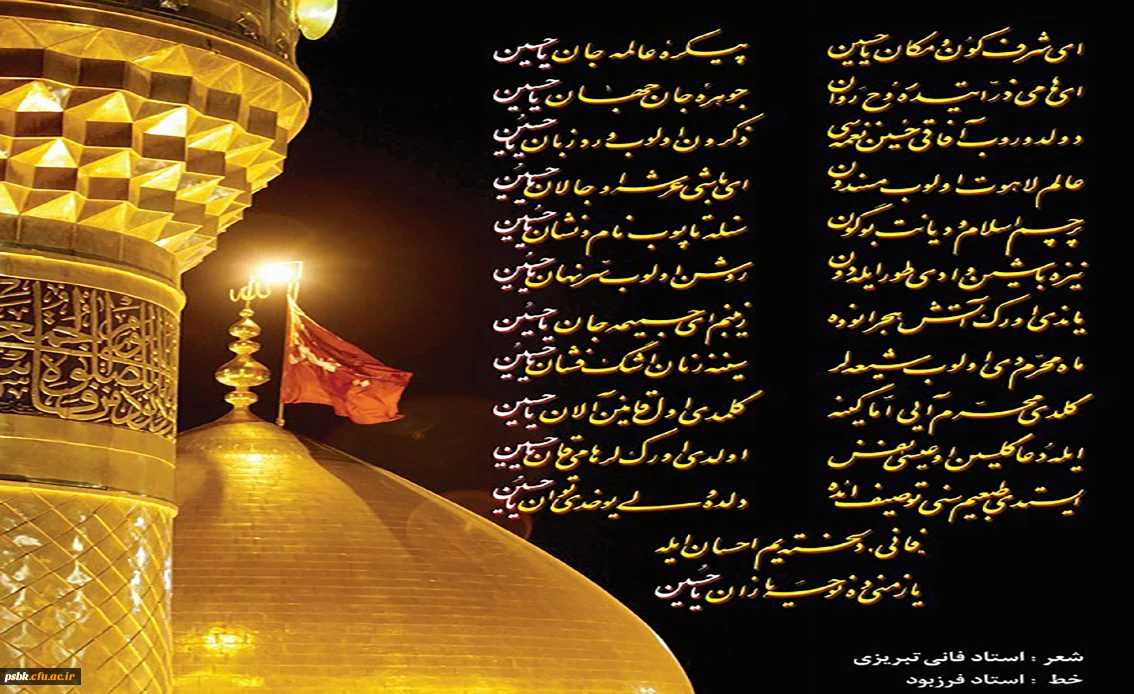 ای شرف کون و مکان یاحسین پیکره عالمه جان یاحسین
ای هامی ذرّاتیده روح روان جوهره جان جهان یاحسین
دولدوروب آفاقی حسینن نغمه‌سی ذکرون اولوب ورد زبان یاحسین
عالم لاهوت اولوب مسندون ای باشی عرشه اوجالان یاحسین
پرچم اسلام و دیانت بوگون سنله تاپوب نام و نشان یاحسین
نیزه باشین وادی طور ایلدون روشن اولوب سرّ نهان یاحسین
یاندی اورک آتش هجرانوده زینبم ای جسیمه جان یاحسین
ماه محرّمدی اولوب شیعه‌لر سینه زنان اشک فشان یاحسین
گلدی محرّم آیی امّا گینه گلمدی اول قانین آلان یاحسین
ایله دعا گلسین او عیسی نفس اولدی اورک لر هامی قان یاحسین
ایستدی طبعیم سنی توصیف ایده دلده ولی یوخدی توان یاحسین
فانی دلخسته یم احسان ایله
یازمنی ده نوحه یازان یاحسین
الله
شعر : استاد فانی تبریزی
خط : استاد فرزبود
psbk.cfu.ac.ir